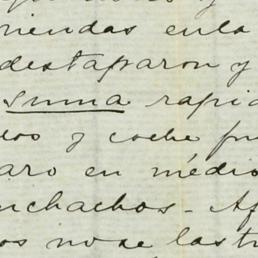 y
niendas en la
destaparon y
suma rapid
os y coche fu
aro en médio
uchachos - Af
os no se las tr